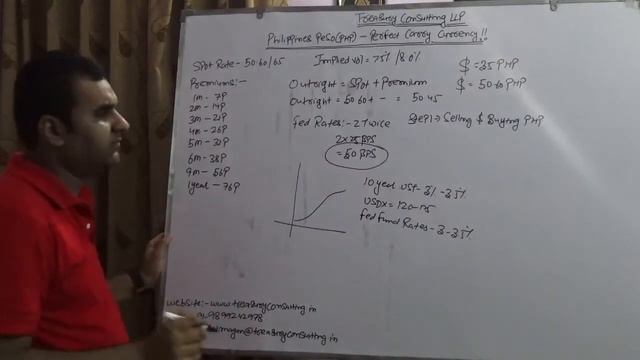 Treasury Consulting LLP
Philippines Peso(PHP) - Perfect Carry Currency!!
Spot Rate - 50.60/65
Implied vol = 75% / 80%
$ = 35 PHP
$ = 50.60 PHP
Premiums:-
1m - 7P
2m - 14P
3m - 21P
4m - 26P
5m - 32P
6m - 38P
9m - 56P
1year - 76P
Outright = Spot + Premium
Outright = 50.60 + - = 50.45
Fed Rates:- 2 Twice
Step1 → Selling $ Buying PHP
2x25 BPS
= 50 BPS
10 year UST - 3% - 3.5%
USDX = 120-
Fed Fund Rates - 3 - 3.5%
website:- www.treasuryconsulting.in
9899242978
@treasuryconsulting.in